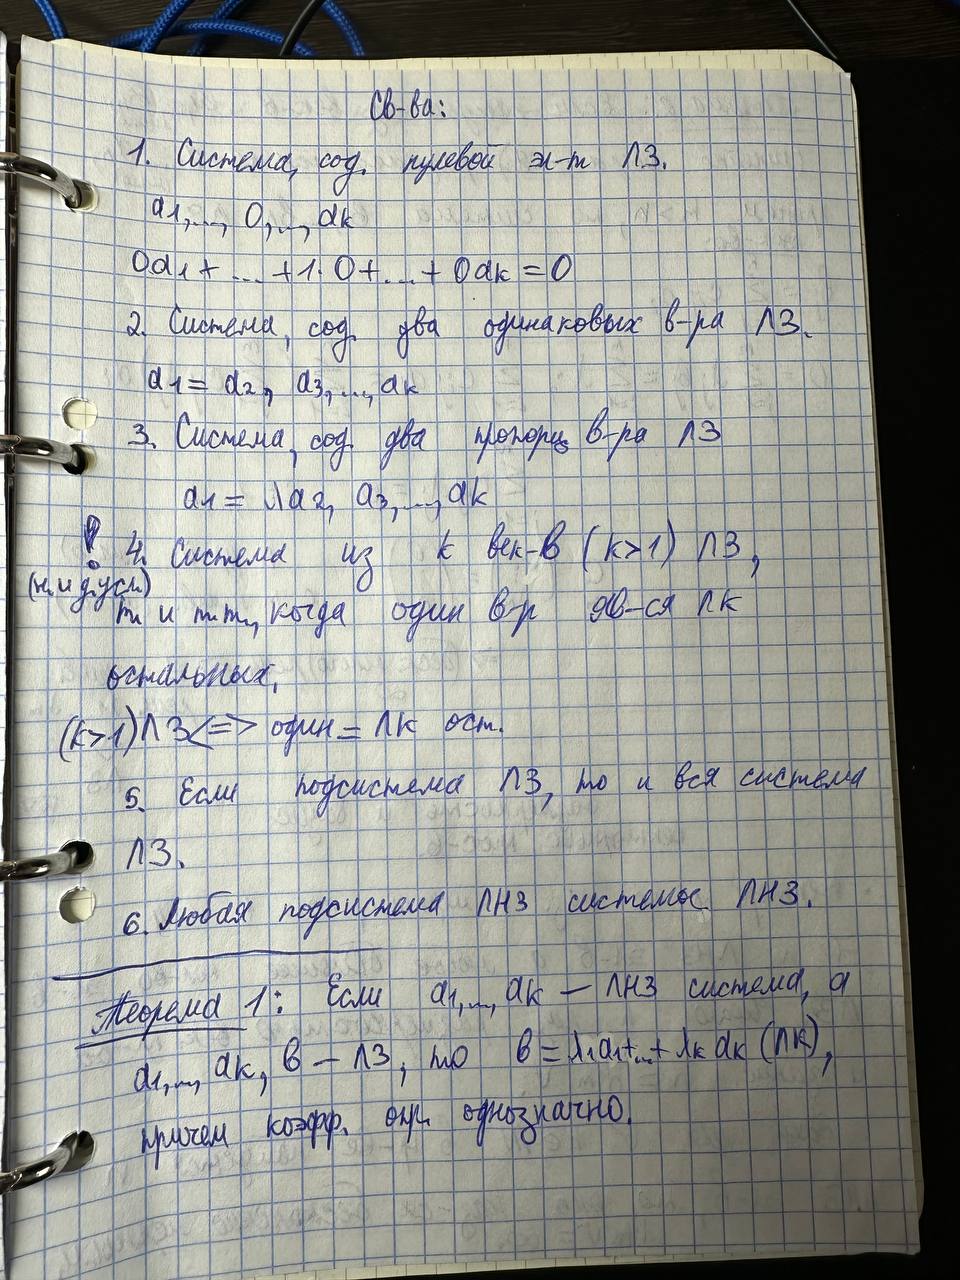 Св-ва:
1. Система, сод. нулевой эл-т ЛЗ.
a1,..., 0,..., ak
0a1 + ... + 1·0 + ... + 0ak = 0
2. Система, сод. два одинаковых в-ра ЛЗ.
a1 = a2, a3,..., ak
3. Система, сод. два пропорц в-ра ЛЗ
a1 = λa2, a3,..., ak
! 4. Система из k век-в (k>1) ЛЗ,
(н. и д. усл)
т и т.т., когда один в-р яв-ся ЛК
остальных.
(k>1) ЛЗ <=> один = ЛК ост.
5. Если подсистема ЛЗ, то и вся система
ЛЗ.
6. Любая подсистема ЛНЗ системы ЛНЗ.
Теорема 1: Если a1,..., ak – ЛНЗ система, а
a1,..., ak, в – ЛЗ, то в = λ1a1+...+ λk ak (ЛК),
причем коэфф. опр. однозначно.